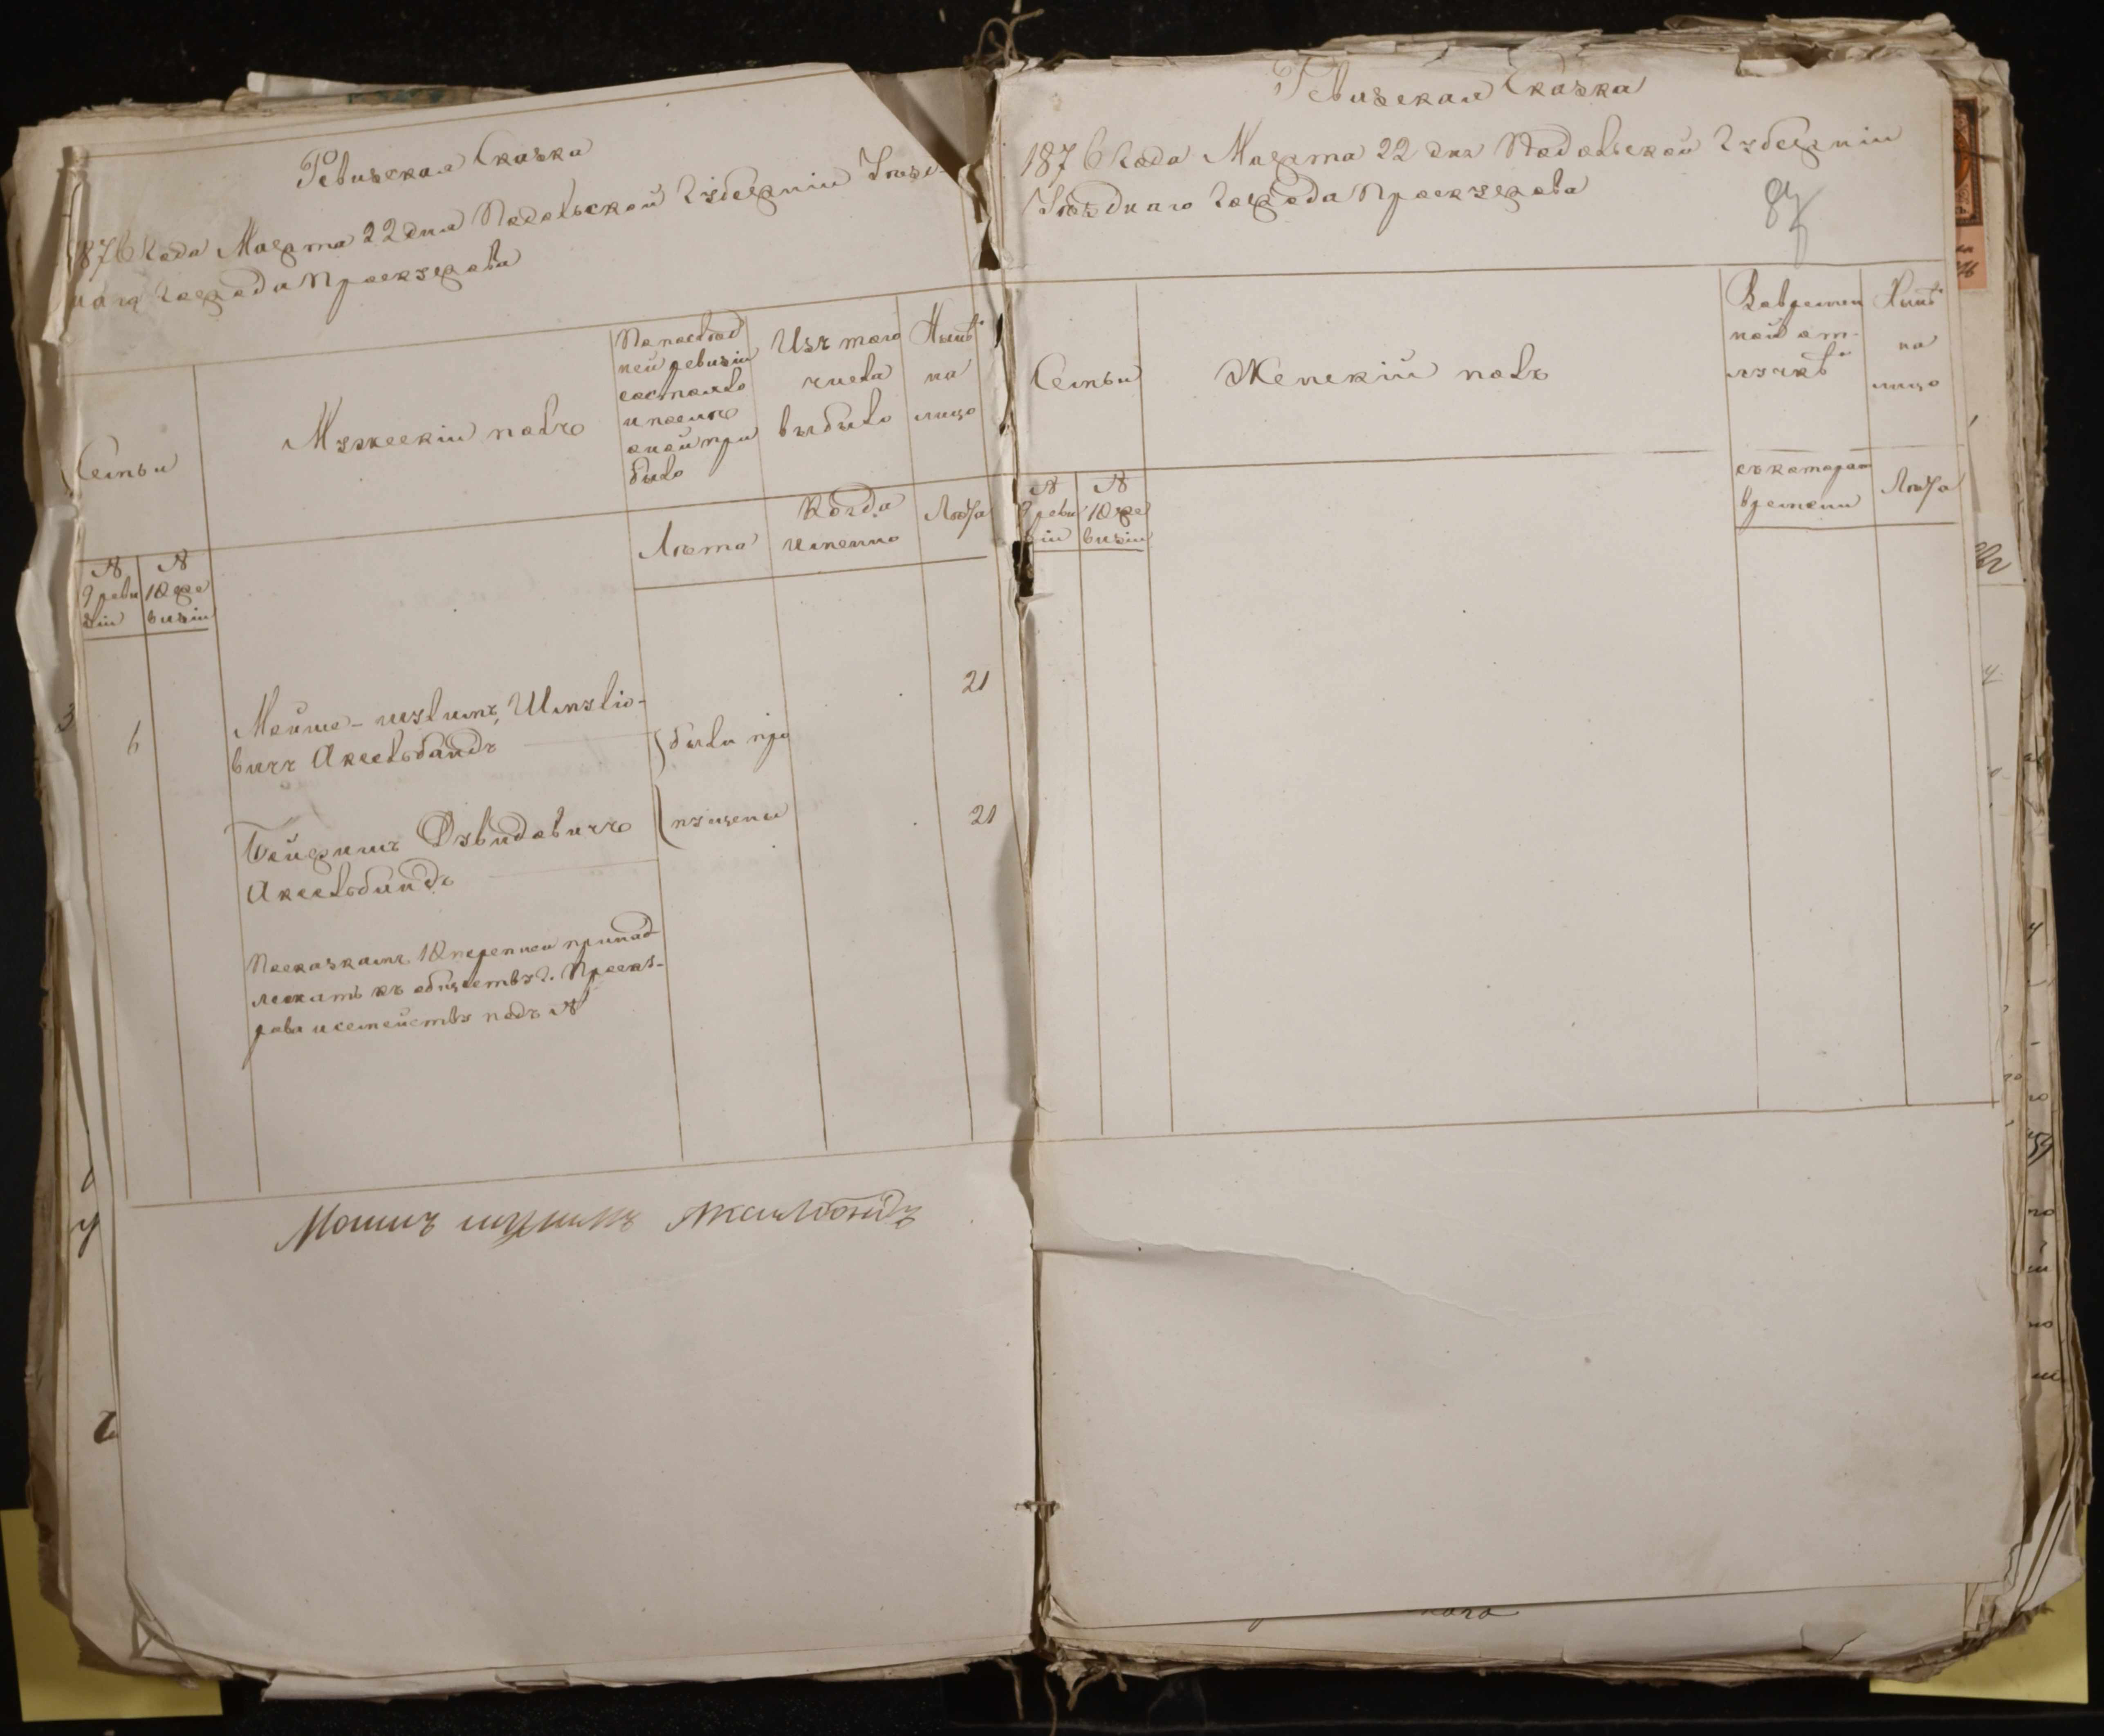 Ревизская Сказка
1876 Года Марта 22 дня Подольской Губерніи Уезд-
наго Города Проскурова
Семьи
Мужескій полъ
По послѣд
ней ревизіи
состояло
и послѣ
оной при
было
Изъ того
числа
выбыло
Нынѣ
на
лицо
№
9 реви
зіи
№
10 ре
визіи
Лѣта
Когда
именно
Лѣта
3
6
Мойше-шулимъ, Шмулiо-
вичъ Аксельбандъ
были про
21
Бейришъ Дувидовичъ
Аксельбандъ
пущены
21
По сказкамъ 10 переписи принад
лежатъ къ обществу г. Проску-
рова и семейству подъ №
Мошич шулимъ Аксильбандъ
Ревизская Сказка
1876 Года Марта 22 дня Подольской Губерніи
Уезднаго Города Проскурова
Семьи
Женскій полъ
Во времен
ной от-
лучкѣ
Нынѣ
на
лицо
№
9 реви
зіи
№
10 ре
визіи
съ котораго
времени
Лѣта